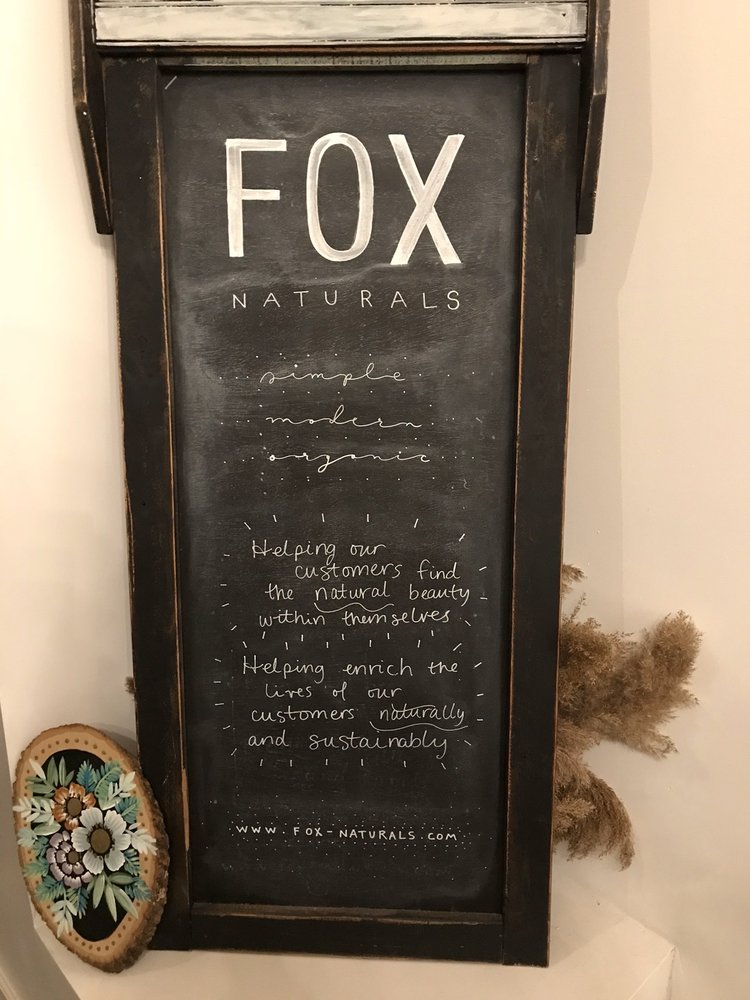 FOX
NATURALS
simple
modern
organic
Helping our
customers find
the natural beauty
within themselves
Helping enrich the
lives of our
customers naturally
and sustainably
WWW.FOX-NATURALS.COM